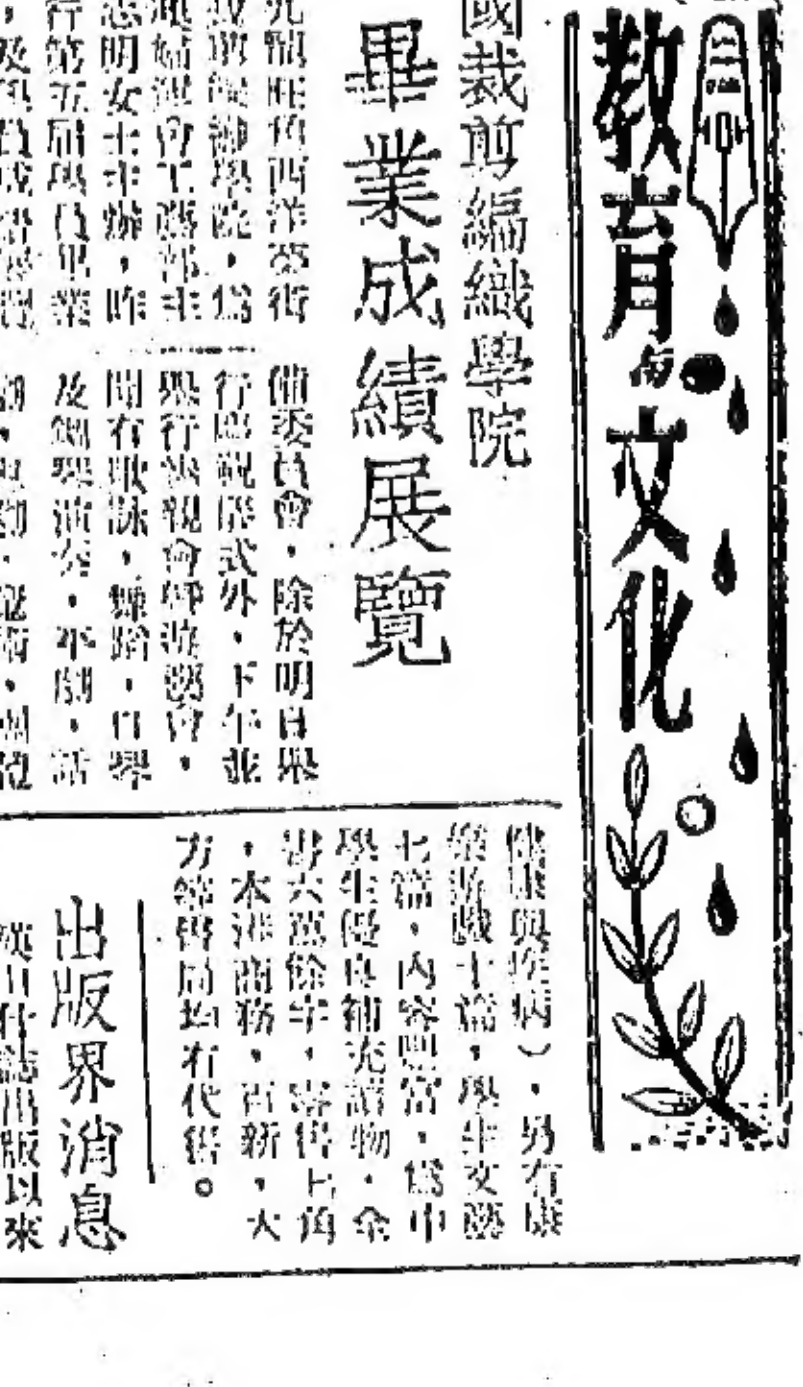 教育與文化
國裁剪編織學院
畢業成績展覽
九龍旺角西洋菜街
剪編織學院，爲
婦運會工藝部主
志明女士主辦，昨
行第五屆學員畢業
備委員會，除於明日舉
行慶祝儀式外，下午並
舉行慶祝會師遊藝會，
聞有歌詠，舞蹈，口琴
及鋼琴演奏，平劇，話
健康與疾病），另有康
樂遊戲十篇，學生文藝
七篇，內容豐富，爲中
學生優良補充讀物，全
書六萬餘字，售七角
，本港商務，百新，大
方等書局均有代售。
出版界消息
出版以來